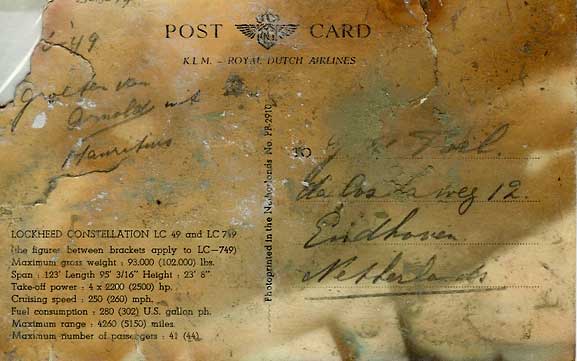 POST CARD
K.L.M. - ROYAL DUTCH AIRLINES
'49
Groeten van
Arnold uit
Mauritius
LOCKHEED CONSTELLATION LC 49 and LC 749
(the figures between brackets apply to LC—749)
Maximum gross weight : 93.000 (102.000) lbs.
Span : 123' Length 95' 3/16" Height : 23' 8"
Take-off power : 4 x 2200 (2500) hp.
Cruising speed : 250 (260) mph.
Fuel consumption : 280 (302) U.S. gallon ph.
Maximum range : 4260 (5150) miles.
Maximum number of passengers : 41 (44)
Photoprinted in the Netherlands No. PR-2910
TO
weg 12.
Eindhoven
Netherlands